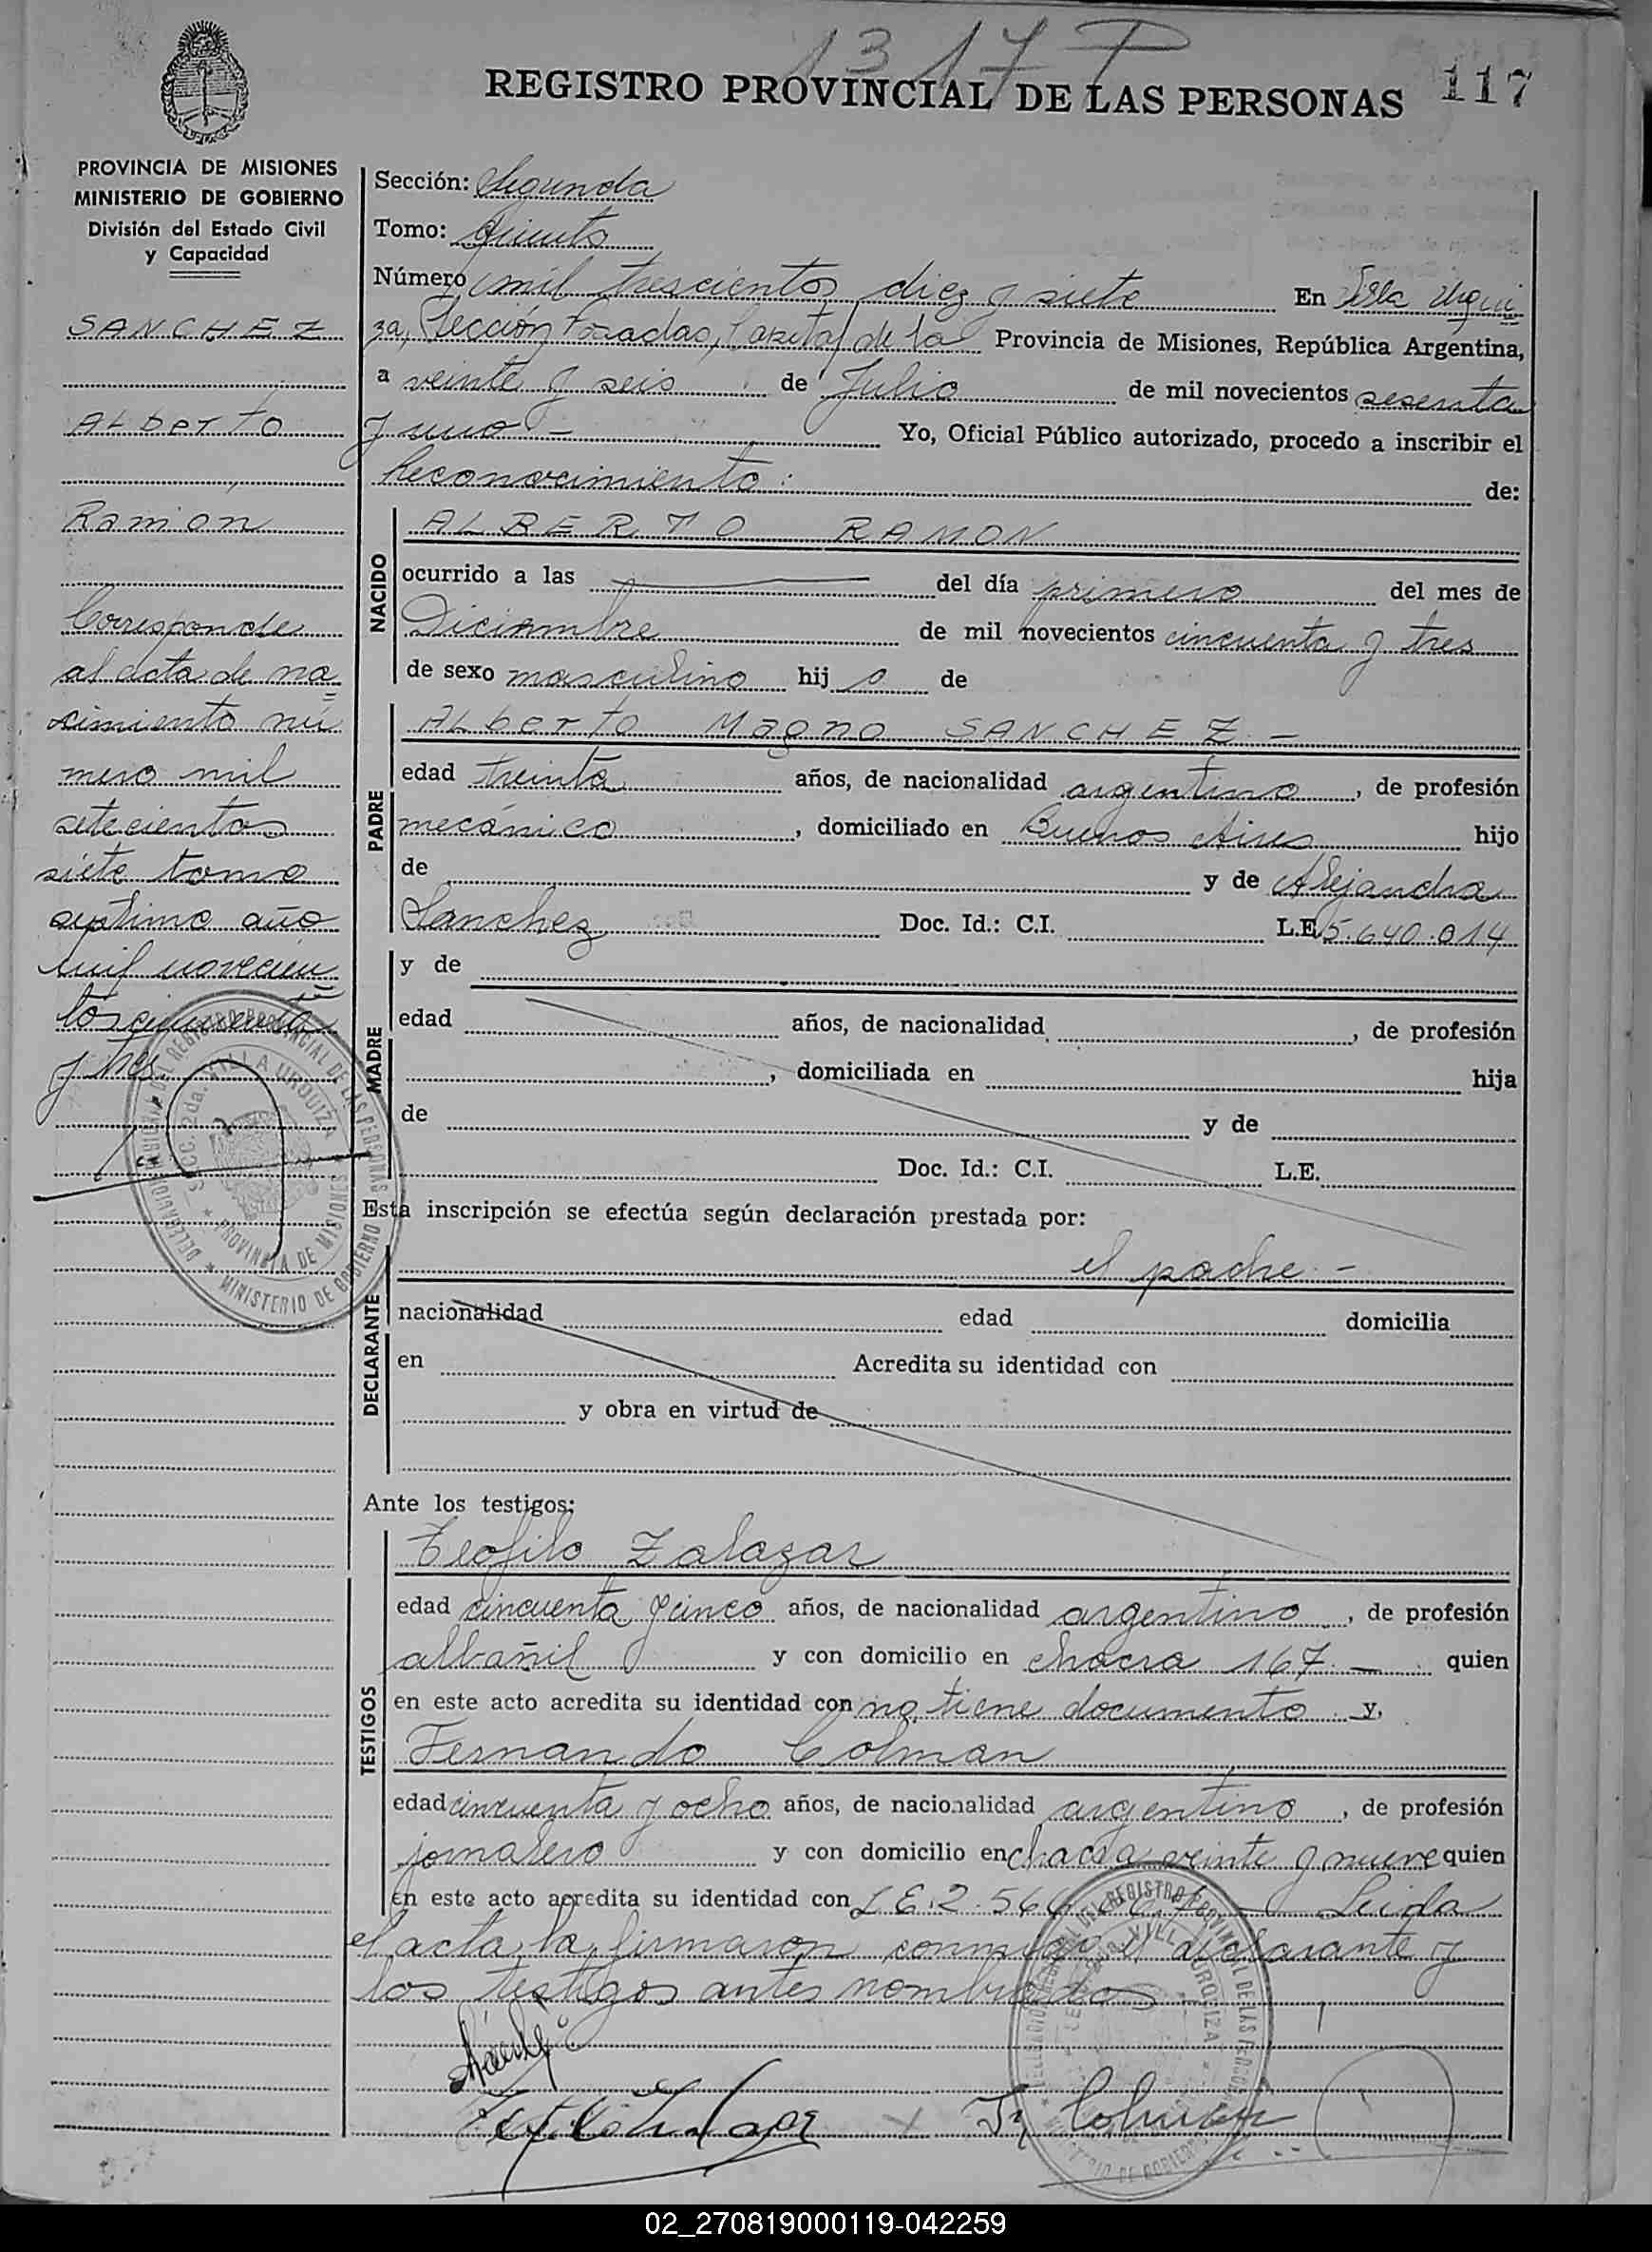 1317 P
REGISTRO PROVINCIAL DE LAS PERSONAS 117
PROVINCIA DE MISIONES
MINISTERIO DE GOBIERNO
División del Estado Civil
y Capacidad
SANCHEZ
Alberto
Ramón
Corresponde
al acta de na=
cimiento nú
mero mil
setecientos
siete tomo
septimo año
mil novecien
tos cincuenta
y tres.
Sección: Segunda
Tomo: Quinto
Número mil trescientos diez y siete En Villa Urqui=
za, Sección Posadas, Capital de la Provincia de Misiones, República Argentina,
a veinte y seis de Julio de mil novecientos sesenta
y uno - Yo, Oficial Público autorizado, procedo a inscribir el
Reconocimiento: de:
NACIDO
ALBERTO RAMON
ocurrido a las del día primero del mes de
Diciembre de mil novecientos cincuenta y tres
de sexo masculino hij o de
PADRE
Alberto Magno SANCHEZ. -
edad treinta años, de nacionalidad argentino, de profesión
mecánico, domiciliado en Buenos Aires hijo
de y de Alejandra
Sanchez Doc. Id.: C.I. L.E. 5.640.014
MADRE
y de
edad años, de nacionalidad , de profesión
, domiciliada en hija
de y de
Doc. Id.: C.I. L.E.
Esta inscripción se efectúa según declaración prestada por:
DECLARANTE
el padre -
nacionalidad edad domicilia
en Acredita su identidad con
y obra en virtud de
Ante los testigos:
TESTIGOS
Teofilo Zalazar
edad cincuenta y cinco años, de nacionalidad argentino, de profesión
albañil y con domicilio en chacra 167. - quien
en este acto acredita su identidad con no tiene documento y,
Fernando Colman
edad cincuenta y ocho años, de nacionalidad argentino, de profesión
jornalero y con domicilio en chacra veinte y nueve quien
en este acto acredita su identidad con L.E. 2.56 Leida
el acta la firmaron conmigo el declarante y
los testigos antes nombrados
DELEGACION DEL REGISTRO PROVINCIAL DE LAS PERSONAS
SECC. 2da. VILLA URQUIZA
PROVINCIA DE MISIONES
MINISTERIO DE GOBIERNO
Colman
02_270819000119-042259